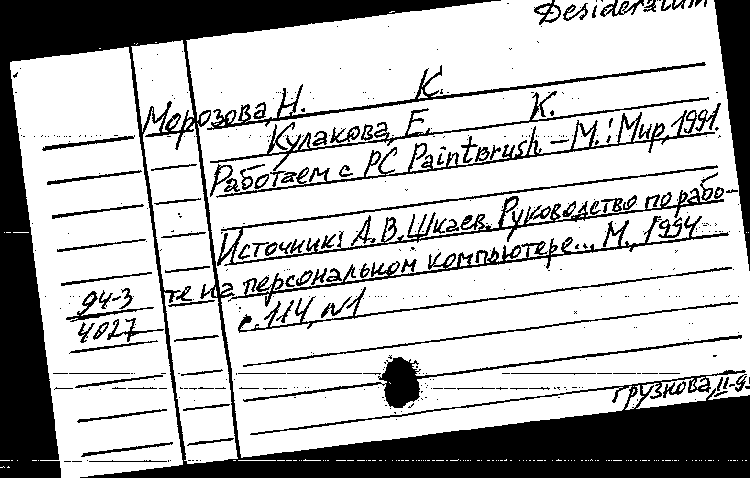 Desideratum
Морозова, Н. К.
Кулакова, Е. К.
Работаем с PC Paintbrush – М.: Мир, 1991.
Источник: А.В. Шкаев. Руководство по рабо-
те на персональном компьютере... М., 1994
с. 114, №1
94-3
4027
Грузнова, II-95